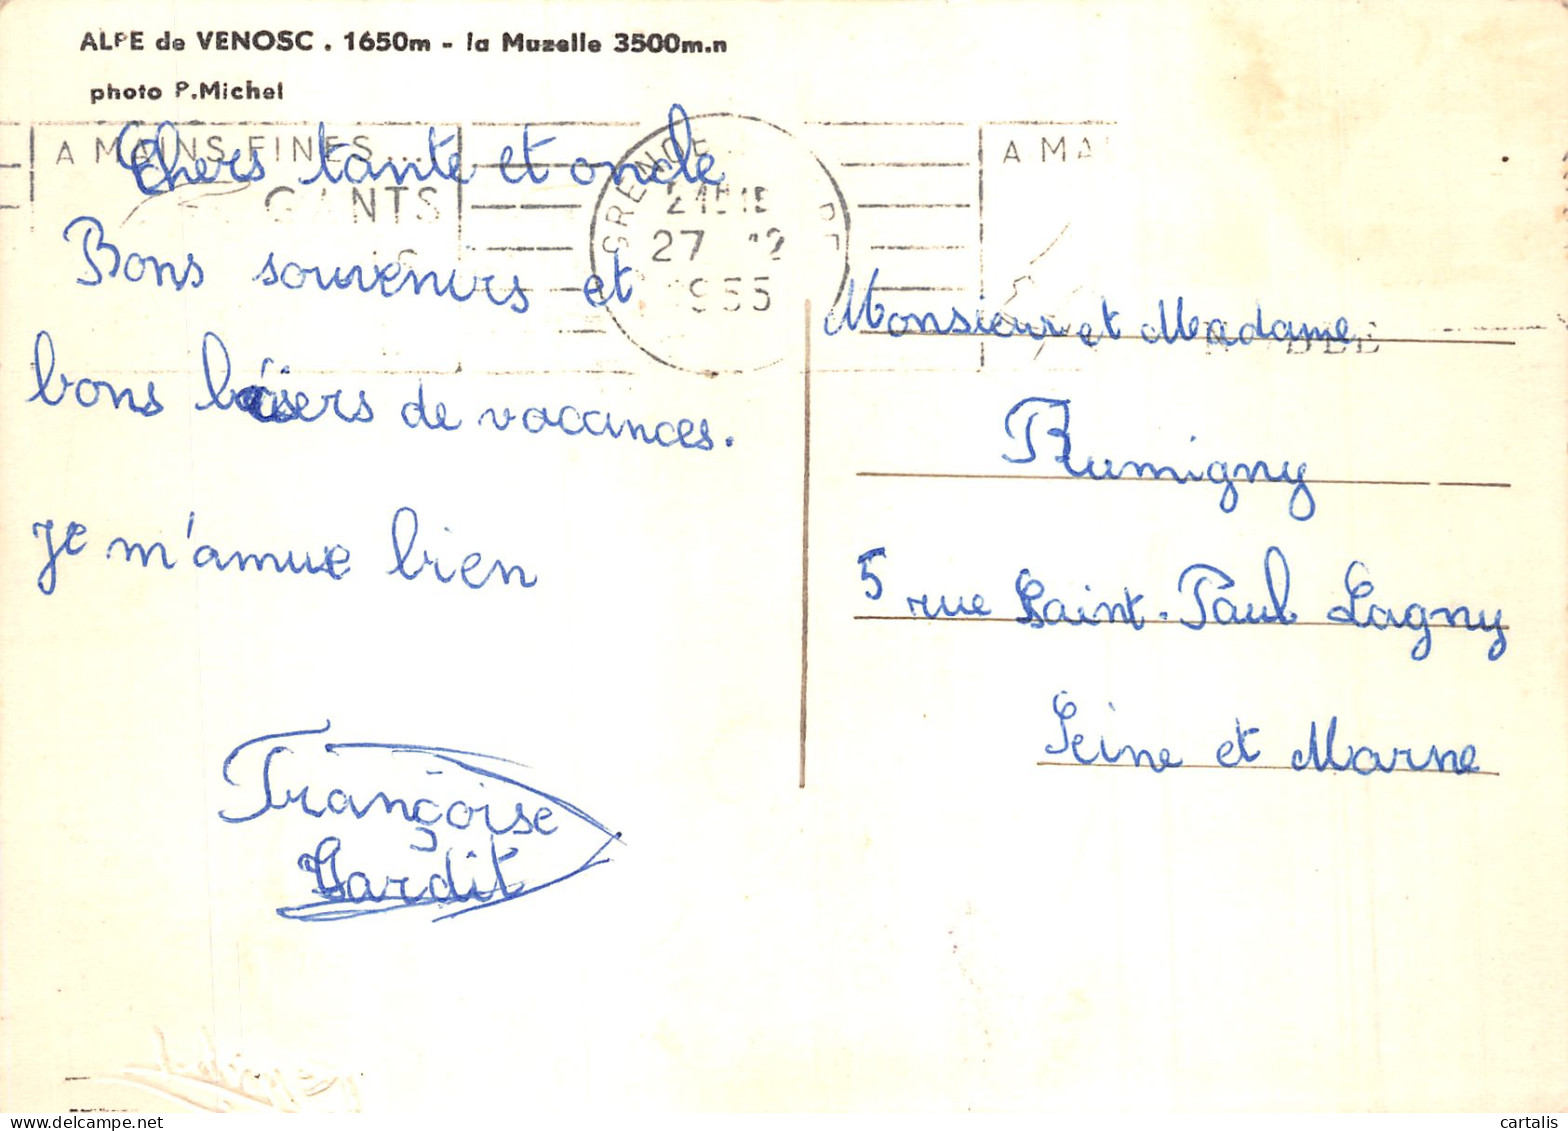 ALPE de VENOSC . 1650m - la Muzelle 3500m.n
photo P.Michel
A MAINS FINES...
GANTS
GRENOBLE
27 12
1955
A MA
Chers tante et oncle
Bons souvenirs et
bons baisers de vacances.
Je m'amuse bien
Françoise
Tardit
Monsieur et Madame
Rumigny
5 rue Saint-Paul Lagny
Seine et Marne
cartalis